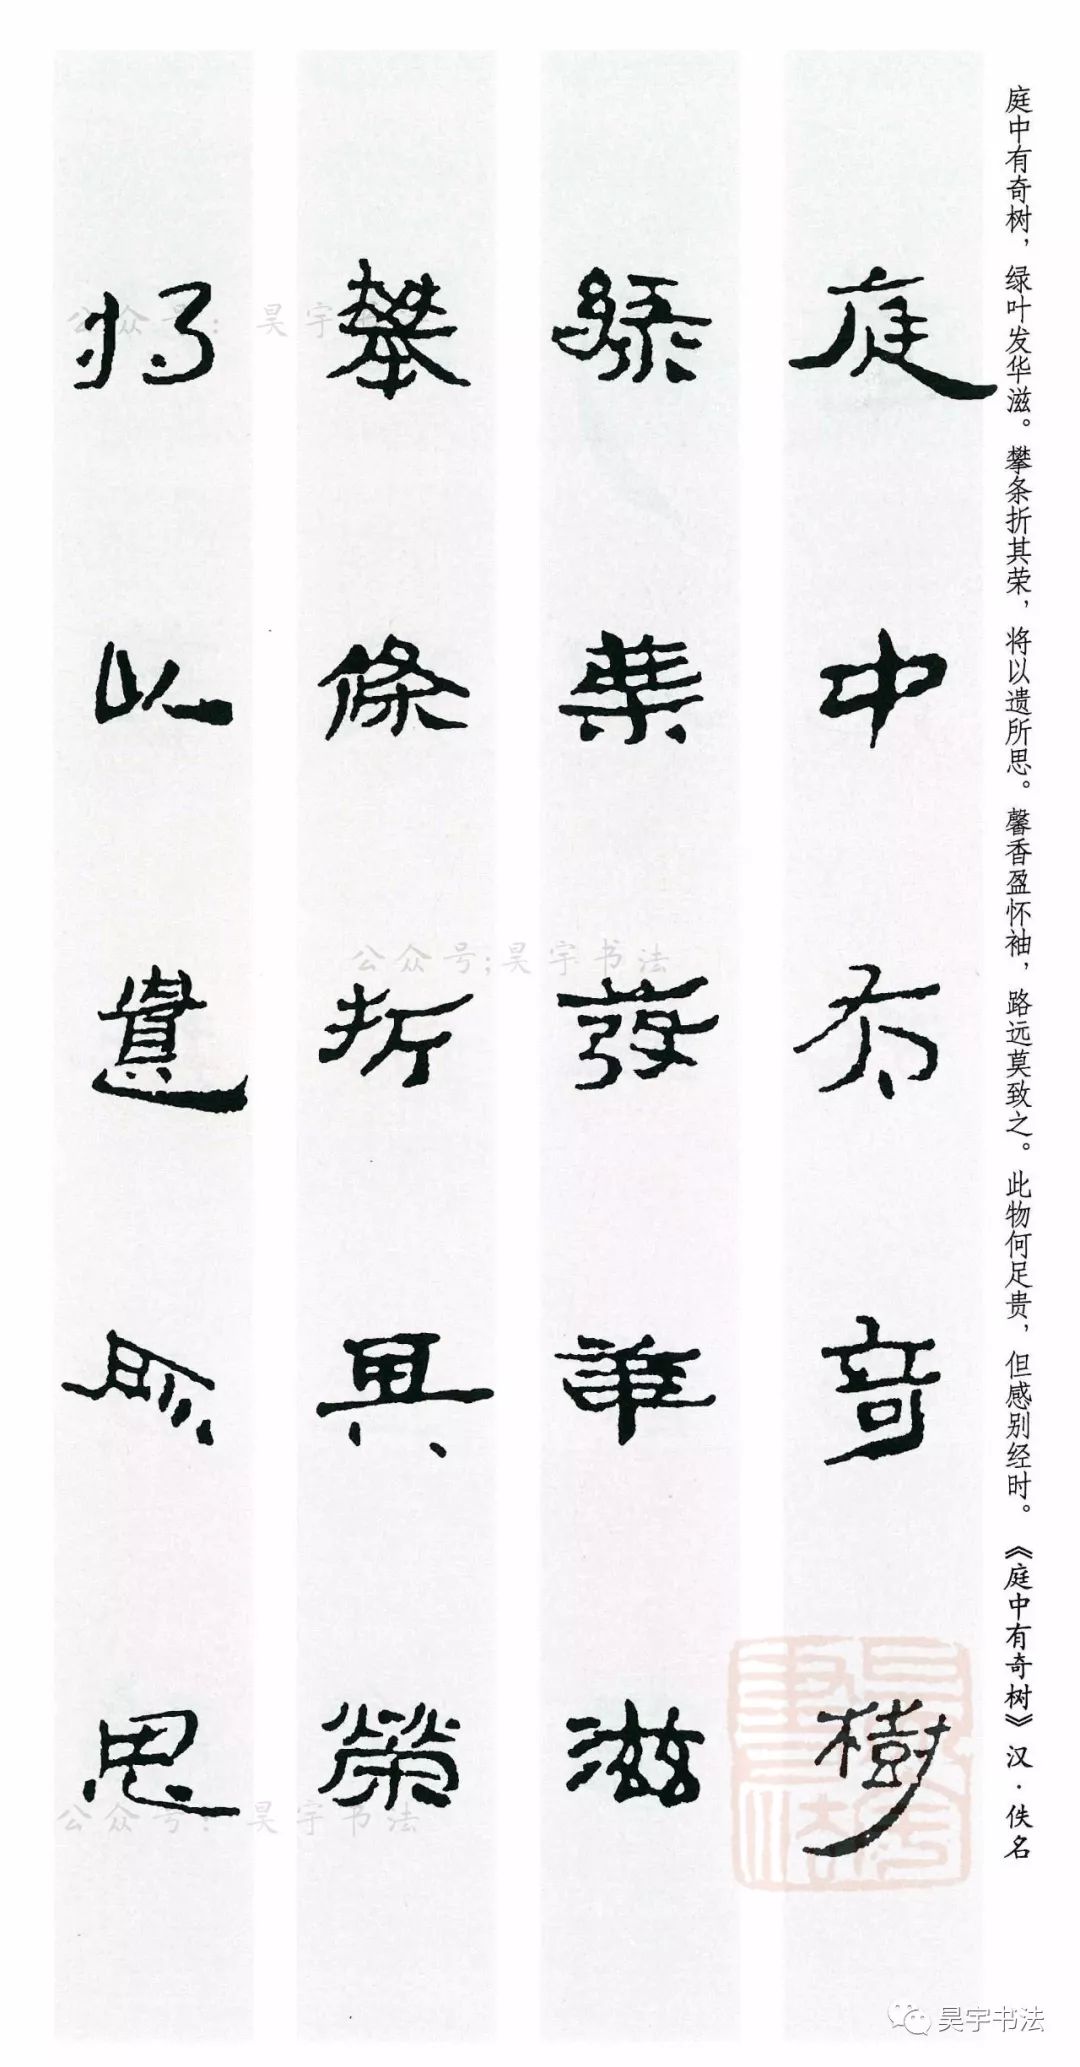 庭中有奇树，绿叶发华滋。攀条折其荣，将以遗所思。馨香盈怀袖，路远莫致之。此物何足贵，但感别经时。《庭中有奇树》汉·佚名
庭中有奇樹
綠葉發華滋
攀條折其榮
將以遺所思
公众号：昊宇
公众号;昊宇书法
公众号：昊宇书法
昊宇书法
昊宇书法